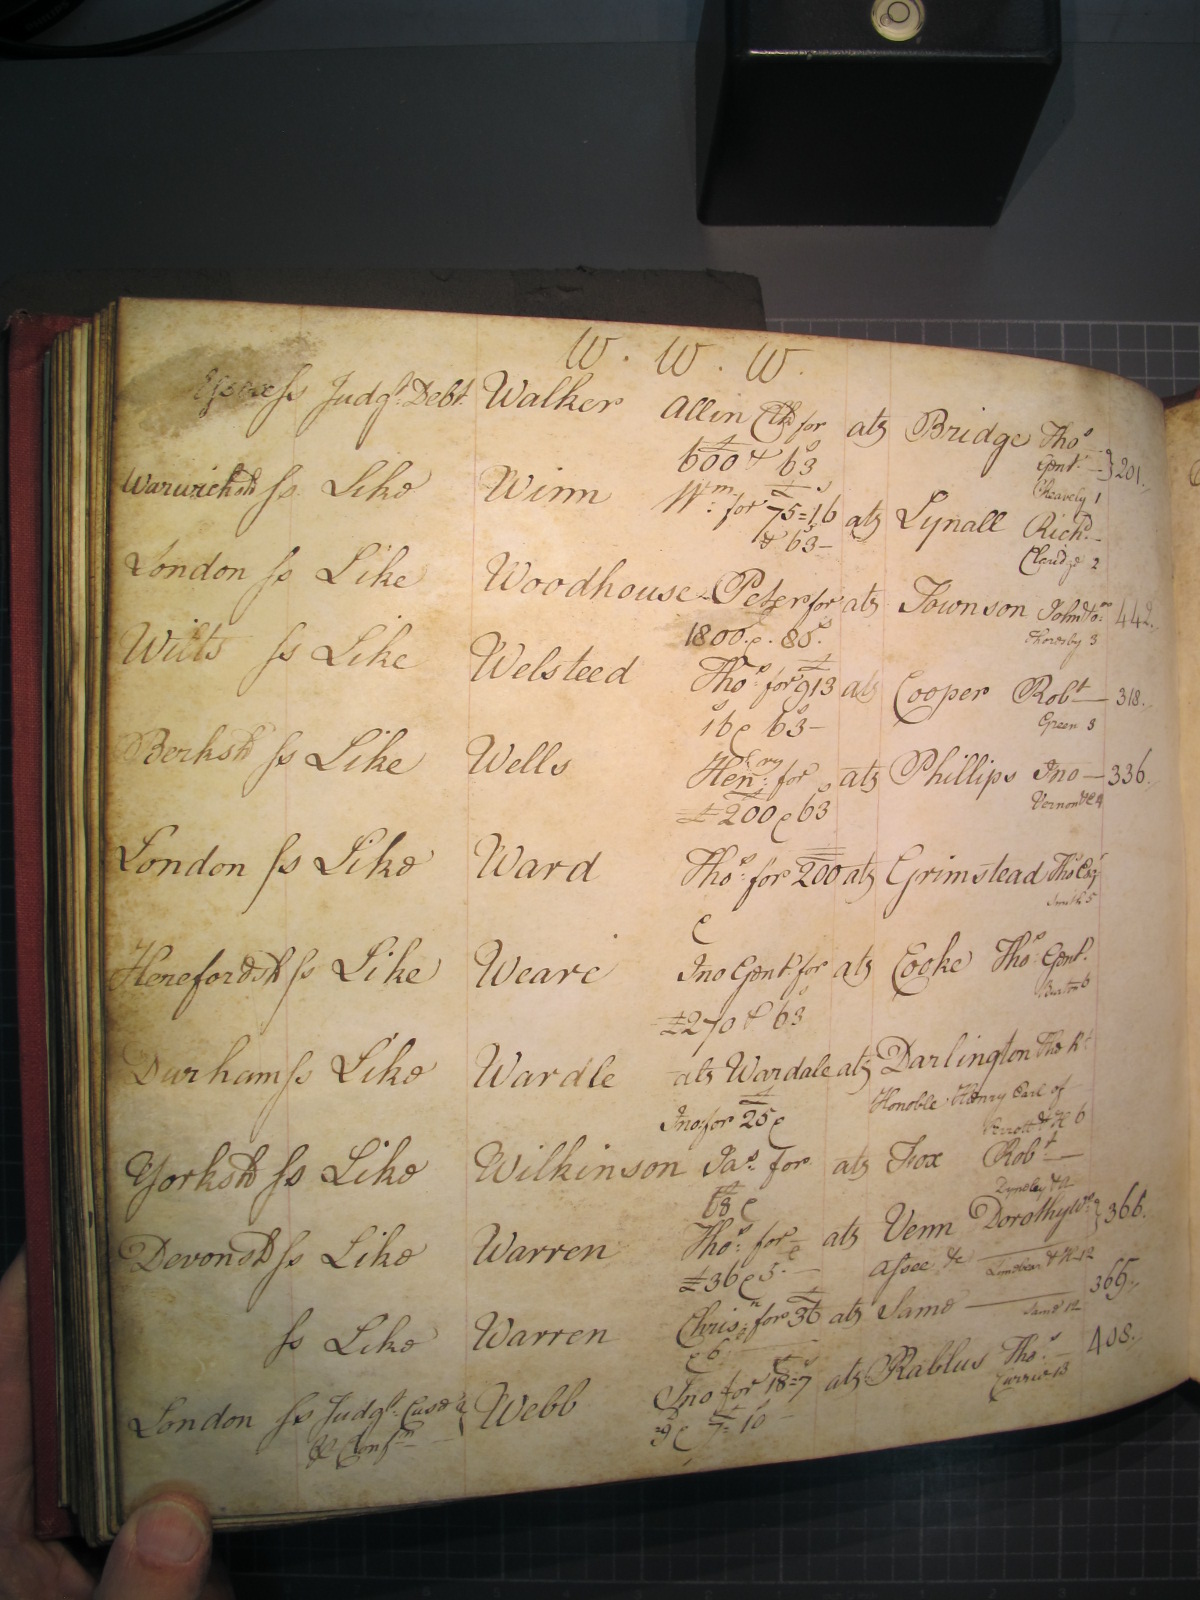 W. W. W.
Essex ſs Judgt. Debt Walker Allin Clk for ats Bridge Thos
600 & 63 Gent. } 201.
Cheavely 1
Warwicksh ſs Like Winn Wm: for 75=16 ats Lynall Richd.
& 63 Claridge 2
London ſs Like Woodhouse Peter for ats Townson John 442.
1800 e 80s. Thoresby 3
Wilts ſs Like Welsteed Thos: for 913 ats Cooper Robt 318.
16 e 63 Green 3
Berksh ſs Like Wells Henry: for ats Phillips Jno 336.
£200 e 63 Vernon & 4
London ſs Like Ward Thos: for 200 ats Grimstead Thos Esqr
e Smith 5
Herefordsh ſs Like Weare Jno Gent for ats Cooke Thos Gent.
£270 & 63 Burton 6
Durham ſs Like Wardle als Wardale ats Darlington The Rt
Jno for 25 e Honoble Henry Earl of
6
Yorksh ſs Like Wilkinson Jas. for ats Fox Robt
68 e
Devonsh ſs Like Warren Thos: for ats Venn Dorothy Wo: } 366.
£36 e 5 aſsee &c 12
ſs Like Warren Chrisn: for 36 ats Same 365.
e 6 Same 12
London ſs Judgt. Case Webb Jno for 18=7 ats Rablus Thos. 408.
& Confn 9 e 7=10 13